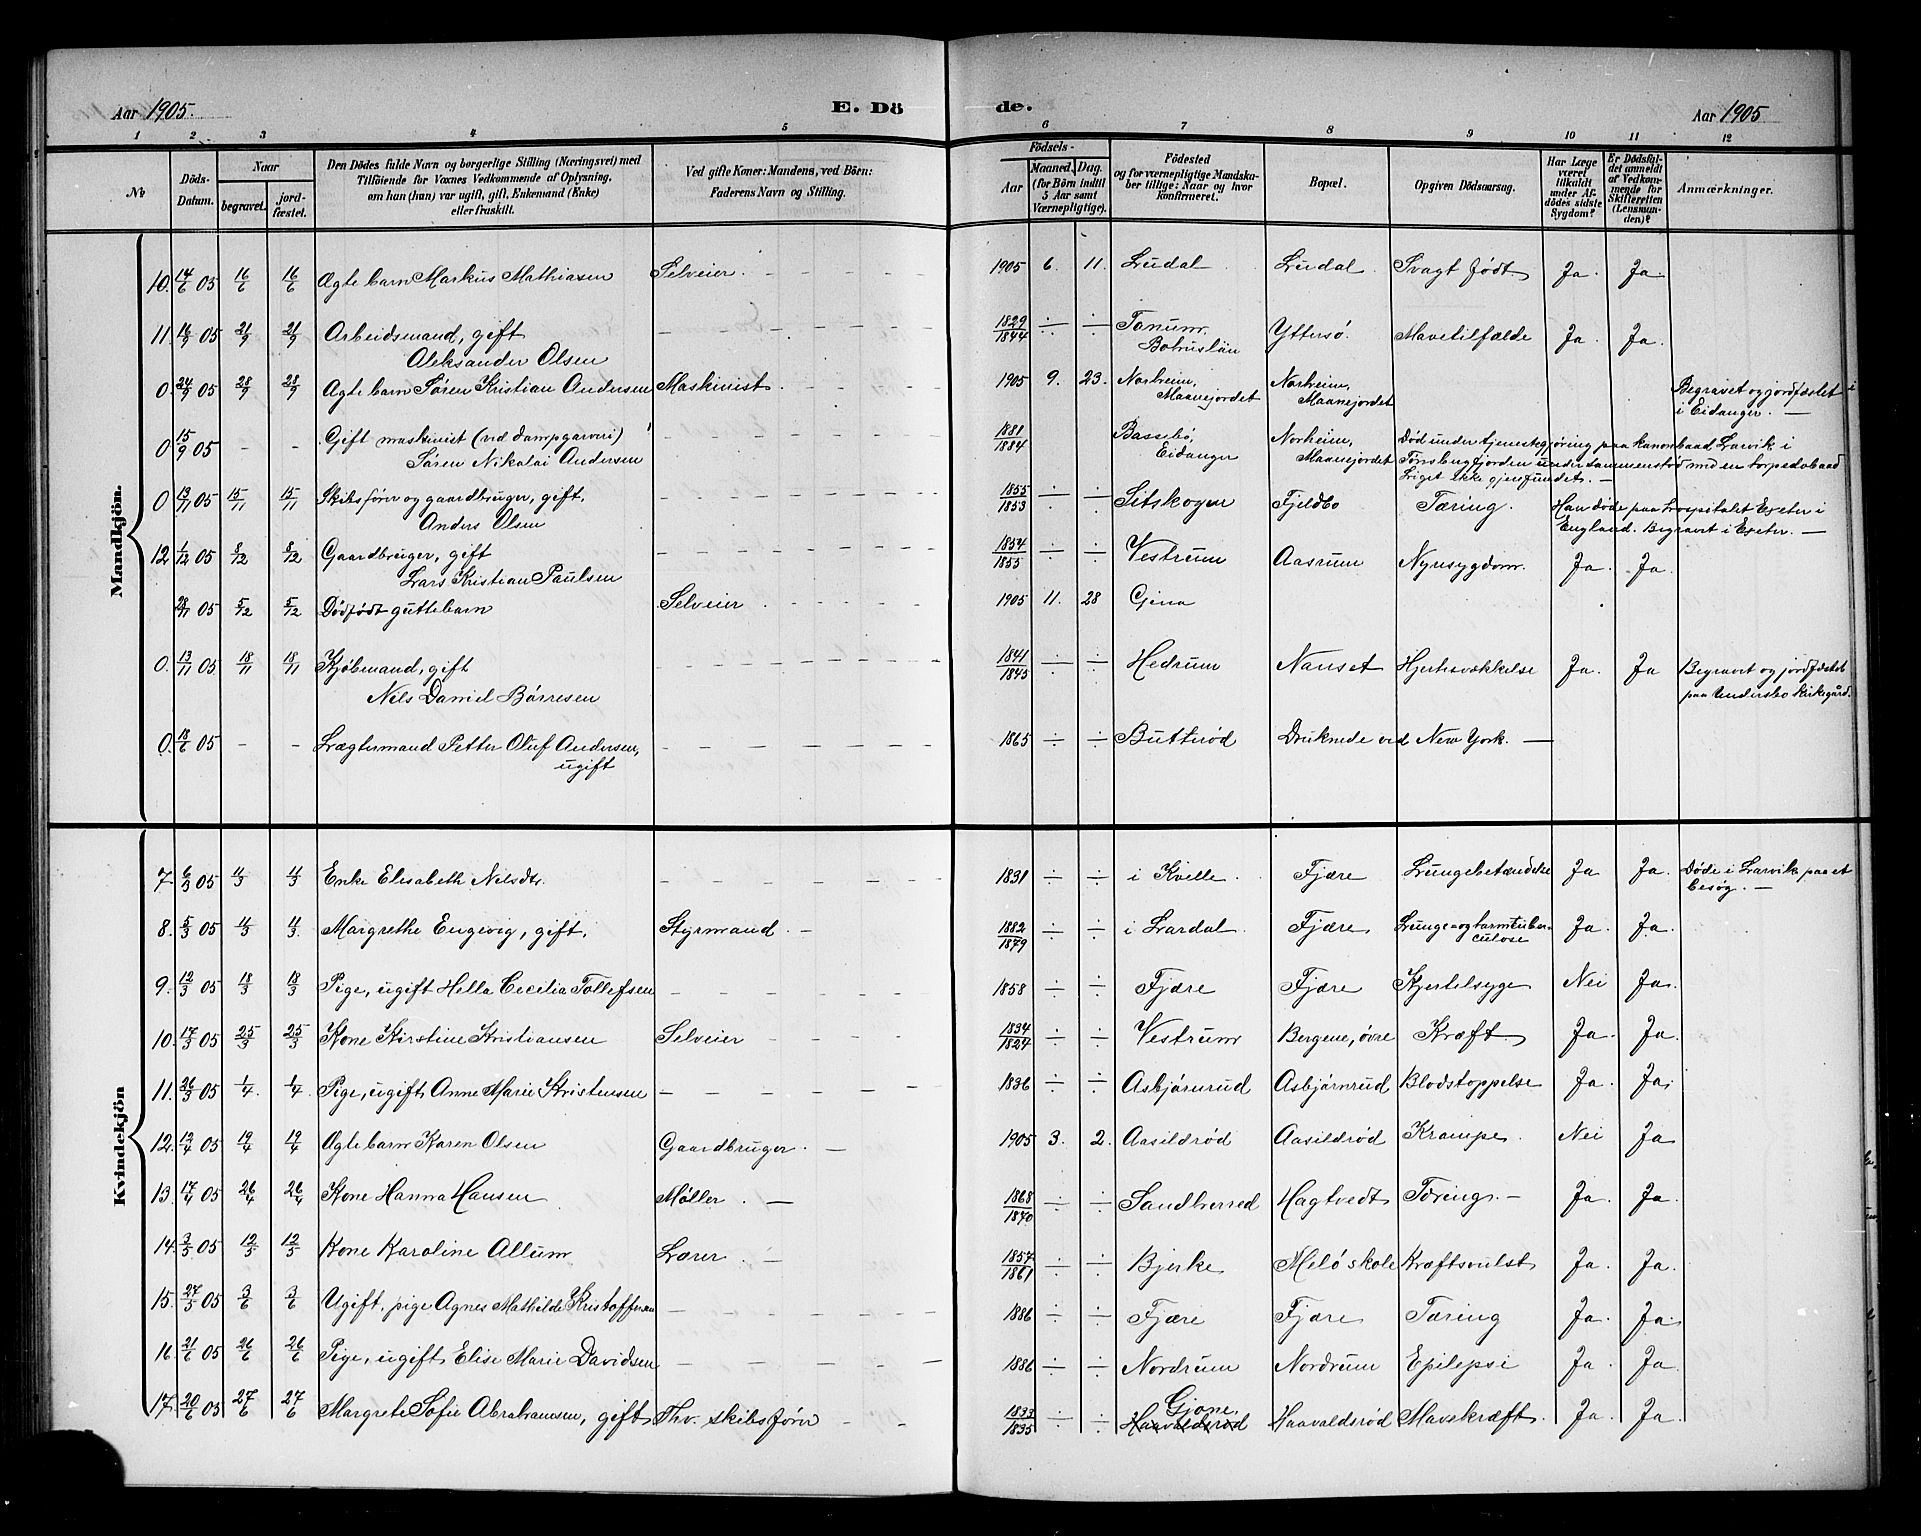 Aar 1905.
E. Dö
de.
Aar 1905
1 2 3 4 5 6 7 8 9 10 11 12
No
Döds-Datum.
Naar
begravet.
jord-fæstet.
Den Dödes fulde Navn og borgerlige Stilling (Næringsvei) med
Tilföiende for Voxnes Vedkommende af Oplysning,
om han (hun) var ugift, gift, Enkemand (Enke)
eller fraskilt.
Ved gifte Koner: Mandens, ved Börn:
Faderens Navn og Stilling.
Födsels-
Aar
Maaned. Dag.
(for Börn indtil
5 Aar samt
Værnepligtige).
Födested
og for værnepligtige Mandska-
ber tillige: Naar og hvor
konfirmeret.
Bopæl.
Opgiven Dödsaarsag.
Har Læge
været
tilkaldt
under Af-
dödes sidste
Sygdom?
Er Dödsfal-
det anmeldt
af Vedkom-
mende for
Skifteretten
(Lensman-
den)?
Anmærkninger.
Mandkjön.
10. 14/6 05 16/6 16/6 Ægte barn Markus Mathiasen Selveier. 1905 6. 11. Ludal Ludal Svagt født. Ja. Ja.
11. 16/9 05 21/9 21/9 Arbeidsmand, gift 1829/1844 ÷ ÷ Tanum, Yttersö. Mavetilfælde Ja. Ja.
Aleksander Olsen Bohuslän
0. 24/9 05 28/9 28/9 Ægte barn Sören Kristian Andersen Maskinist. 1905 9. 23. Norheim, Norheim, Begravet og jordfæstet i
Maanejordet Maanejordet i Eidanger. —
0 15/9 05 - - Gift maskinist (vid dampgarveri) 1881/1884 Bassebö, Norheim, Död under tjenestegjöring paa kanonbaad Larvik i
Sören Nikolai Andersen Eidanger Maanejordet Tönsbergfjorden under sammenstöd med en torpedobaad
Liget ikke gjenfundet. —
0 13/11 05 15/11 15/11 Skibsförer og gaardbruger, gift, 1855/1853 ÷ ÷ Sitskogen Fjeldbo Tæring. Han döde paa Hospitalet Exeter i
Anders Olsen England. Begravet i Exeter. —
12 1/12 05 8/12 8/12 Gaardbruger, gift 1854/1855 ÷ ÷ Vestrum Aasrum Nyresygdom. Ja. Ja.
Lars Kristian Paulsen
28/11 05 5/12 5/12 Dödfödt guttebarn Selveier 1905 11. 28 Gjena
0. 13/11 05 18/11 18/11 Kjöbmand, gift 1841/1845 ÷ ÷ Hedrum Nanset Hjertesvækkelse Ja. Ja Begravet og jordfæstet
Nils Daniel Börresen paa Undersbo Kirkegård.
0. 18/6 05 - - Lægtermand Petter Oluf Andersen, 1865 ÷ ÷ Butteröd Druknede ved New York. —
ugift
Kvindekjön
7. 6/3 05 11/3 11/3 Enke Elisabeth Nilsdtr. 1831 ÷ ÷ i Kvelle. Fjære Lungebetændelse Ja Ja. Döde i Larvik paa et
besög. —
8. 5/3 05 11/3 11/3. Margrethe Engevig, gift. Styrmand. 1882/1879 ÷ ÷ i Lardal. Fjære Lunge- og tarmtuber-
culose Ja. Ja.
9. 12/3 05 18/3 18/3 Pige, ugift Hella Cecilia Tollefsen 1858 ÷ ÷ Fjære Fjære Kjertelsyge Nei Ja.
10. 17/3 05 25/3 25/3 Kone Kirstine Kristiansen Selveier 1834/1824 ÷ ÷ Vestrum Bergene, övre Kræft Ja. Ja.
11. 26/3 05 1/4. 1/4. Pige, ugift, Anne Marie Kristensen 1836 ÷ ÷ Asbjörnrud Asbjörnrud Blodstoppelse Ja. Ja.
12. 12/4 05 19/4 19/4 Ægte barn Karen Olsen Gaardbruger. 1905 3. 2. Aasildröd Aasildröd Krampe. Nei Ja
13. 17/4 05 26/4 26/4 Kone Hanna Hansen Möller. 1868/1870 ÷ ÷ Sandherred Hagtvedt Tæring. — Ja. Ja.
14. 3/5 05 12/5 12/5 Kone Karoline Allum Lærer. 1857/1861 ÷ ÷ Bjerke Melö skole Kræftsvulst Ja. Ja.
15. 27/5 05 3/6 3/6 Ugift, pige Agnes Mathilde Kristoffersen 1886 ÷ ÷ Fjære Fjære Tæring Ja. Ja.
16. 21/6 05 26/6 26/6 Pige, ugift, Elise Marie Davidsen 1886 ÷ ÷ Nordrum Nordrum Epilepsi Ja. Ja.
17. 20/6 05 27/6 27/6 Margrete Sofie Abrahamsen, gift Fhv. skibsförer 1833/1835 ÷ ÷ Gjone. Haavaldsröd Haavaldsröd Mavekræft. Ja. Ja.